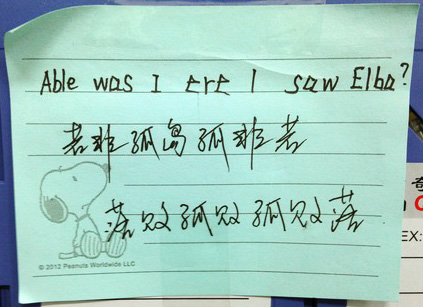 Able was I ere I saw Elba?
若非孤岛孤非若
落败孤败孤败落
© 2012 Peanuts Worldwide LLC
EX: